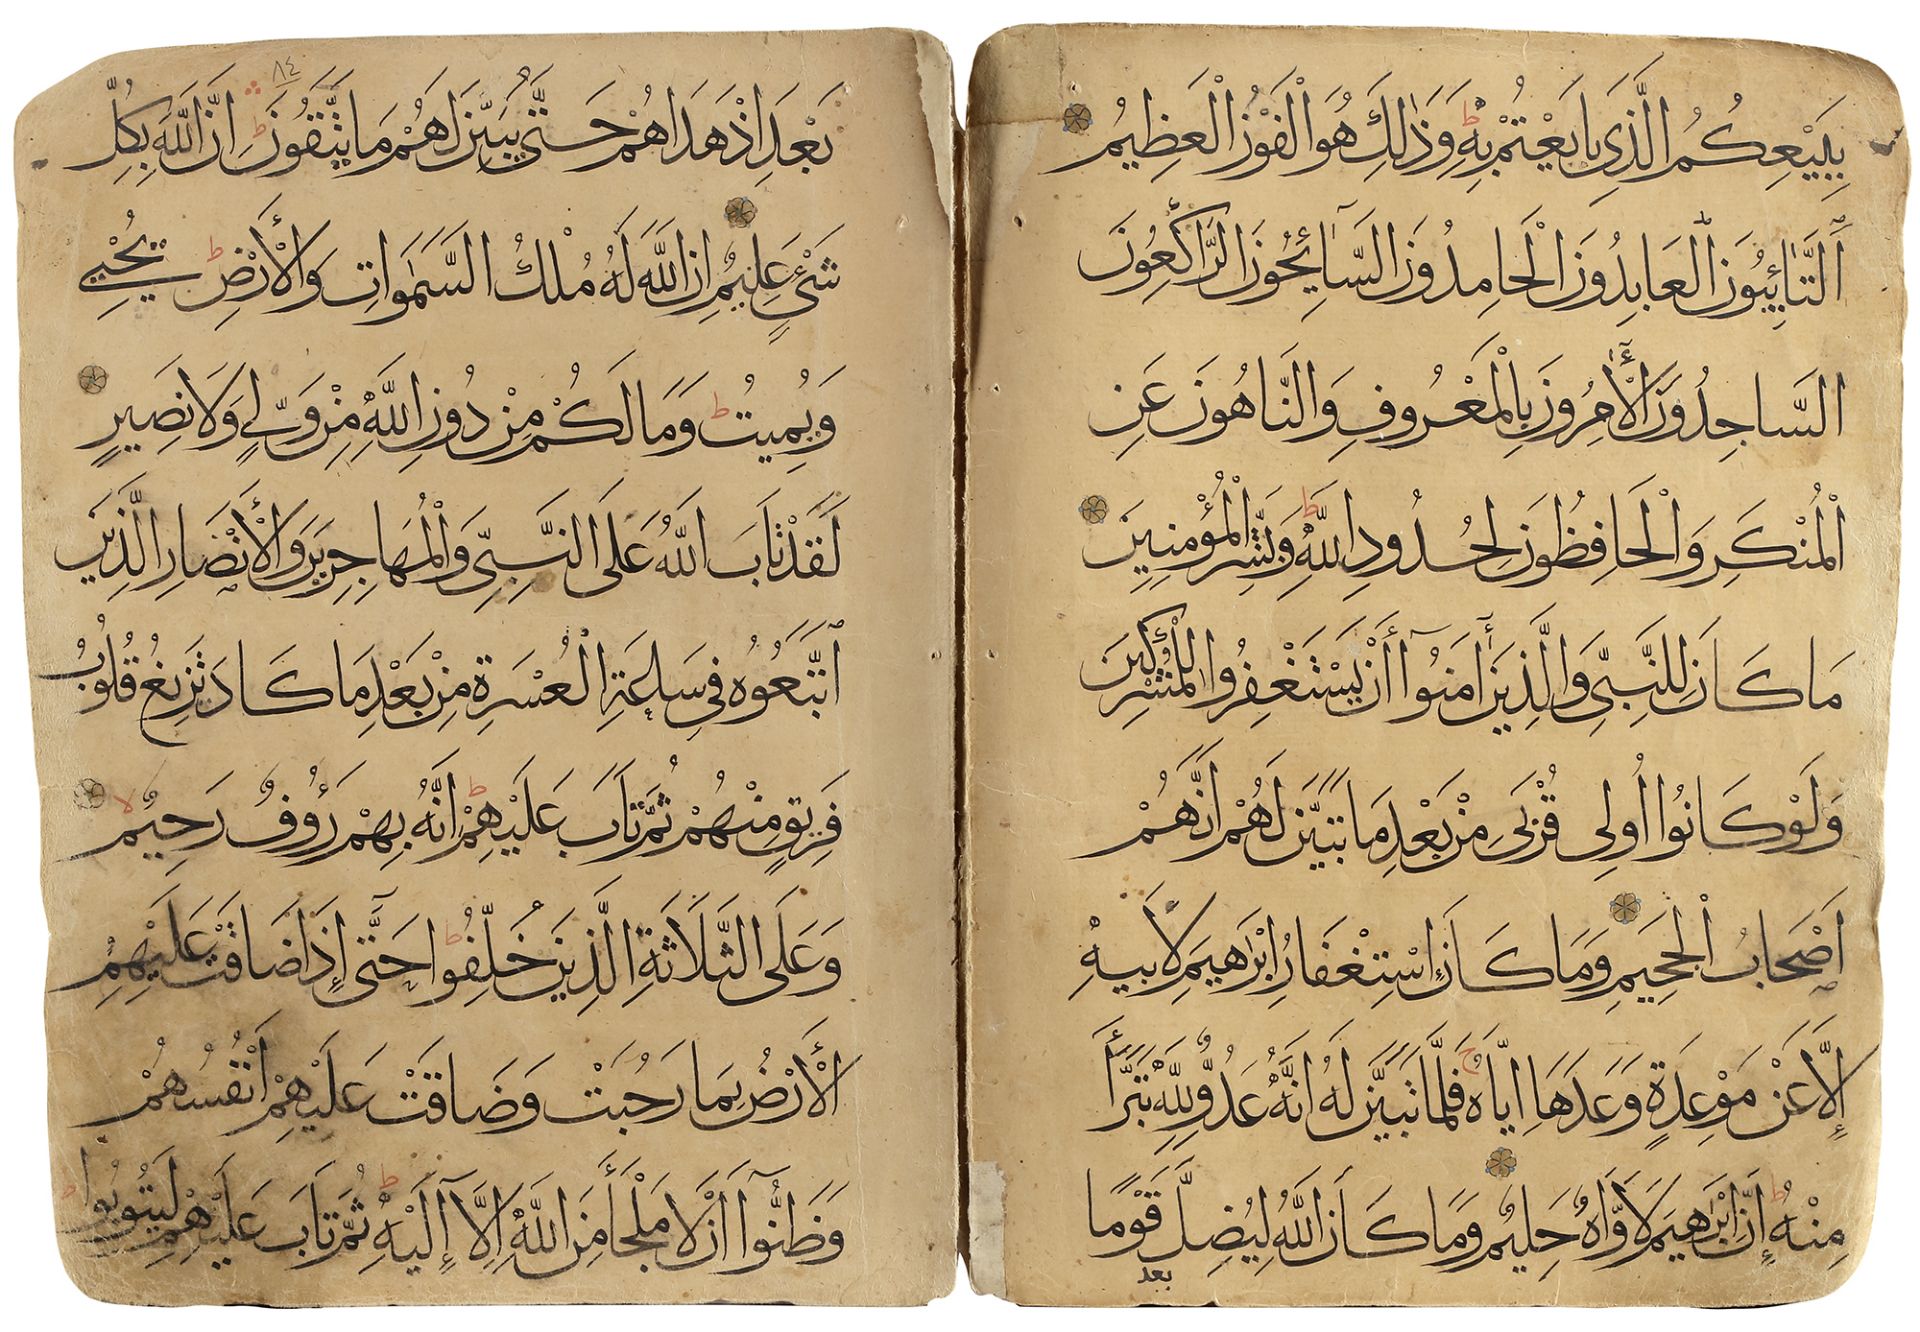 بِبَيْعِكُمُ الَّذِي بَايَعْتُمْ بِهِ ط وَذَٰلِكَ هُوَ الْفَوْزُ الْعَظِيمُ
اَلتَّائِبُونَ الْعَابِدُونَ الْحَامِدُونَ السَّائِحُونَ الرَّاكِعُونَ
السَّاجِدُونَ الْأٰمِرُونَ بِالْمَعْرُوفِ وَالنَّاهُونَ عَنِ
الْمُنْكَرِ وَالْحَافِظُونَ لِحُدُودِ اللَّهِ ط وَبَشِّرِ الْمُؤْمِنِينَ
مَا كَانَ لِلنَّبِيِّ وَالَّذِينَ أَمَنُوآ أَنْ يَسْتَغْفِرُوا لِلْمُشْرِكِينَ
وَلَوْ كَانُوا أُولِي قُرْبَى مِنْ بَعْدِ مَا تَبَيَّنَ لَهُمْ أَنَّهُمْ
أَصْحَابُ الْجَحِيمِ وَمَا كَانَ اسْتِغْفَارُ إِبْرٰهِيمَ لِأَبِيهِ
إِلَّا عَنْ مَوْعِدَةٍ وَعَدَهَا إِيَّاهُ ج فَلَمَّا تَبَيَّنَ لَهُ أَنَّهُ عَدُوٌّ لِلَّهِ تَبَرَّأَ
مِنْهُ ط إِنَّ إِبْرٰهِيمَ لَأَوَّاهٌ حَلِيمٌ وَمَا كَانَ اللَّهُ لِيُضِلَّ قَوْمًا
بعد
٨٤
بَعْدَ إِذْ هَدَاهُمْ حَتَّى يُبَيِّنَ لَهُمْ مَا يَتَّقُونَ ط إِنَّ اللَّهَ بِكُلِّ
شَيْءٍ عَلِيمٌ إِنَّ اللَّهَ لَهُ مُلْكُ السَّمٰوَاتِ وَالْأَرْضِ ط يُحْيِي
وَيُمِيتُ ط وَمَا لَكُمْ مِنْ دُونِ اللَّهِ مِنْ وَلِيٍّ وَلَا نَصِيرٍ
لَقَدْ تَابَ اللَّهُ عَلَى النَّبِيِّ وَالْمُهَاجِرِينَ وَالْأَنْصَارِ الَّذِينَ
اتَّبَعُوهُ فِي سَاعَةِ الْعُسْرَةِ مِنْ بَعْدِ مَا كَادَ تَزِيغُ قُلُوبُ
فَرِيقٍ مِنْهُمْ ثُمَّ تَابَ عَلَيْهِمْ ط إِنَّهُ بِهِمْ رَؤُوفٌ رَحِيمٌ لا
وَعَلَى الثَّلَاثَةِ الَّذِينَ خُلِّفُوا ط حَتَّى إِذَا ضَاقَتْ عَلَيْهِمُ
الْأَرْضُ بِمَا رَحُبَتْ وَضَاقَتْ عَلَيْهِمْ أَنْفُسُهُمْ
وَظَنُّوآ أَنْ لَا مَلْجَأَ مِنَ اللَّهِ إِلَّآ إِلَيْهِ ط ثُمَّ تَابَ عَلَيْهِمْ لِيَتُوبُوا ط